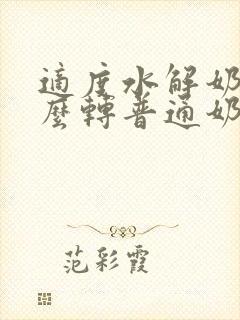 適度水解奶
麼轉普通奶
范彩霞